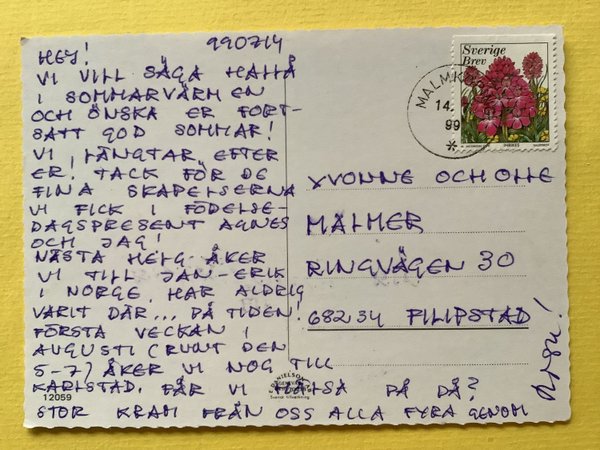 HEJ! 990714
VI VILL SÄGA HALLÅ
I SOMMARVÄRMEN
OCH ÖNSKA ER FORT-
SATT GOD SOMMAR!
VI LÄNGTAR EFTER
ER! TACK FÖR DE
FINA SKAPELSERNA
VI FICK I FÖDELSE-
DAGSPRESENT AGNES
OCH JAG!
NÄSTA HELG ÅKER
VI TILL JAN-ERIK
I NORGE, HAR ALDRIG
VARIT DÄR... PÅ TIDEN!
FÖRSTA VECKAN I
AUGUSTI (RUNT DEN
5-7) ÅKER VI NOG TILL
KARLSTAD. FÅR VI HÄLSA PÅ DÅ?
STOR KRAM FRÅN OSS ALLA FYRA GENOM
12059
Sverige
Brev
INRIKES
14.
99
YVONNE OCH OLLE
MALMER
RINGVÄGEN 30
682 34 FILIPSTAD